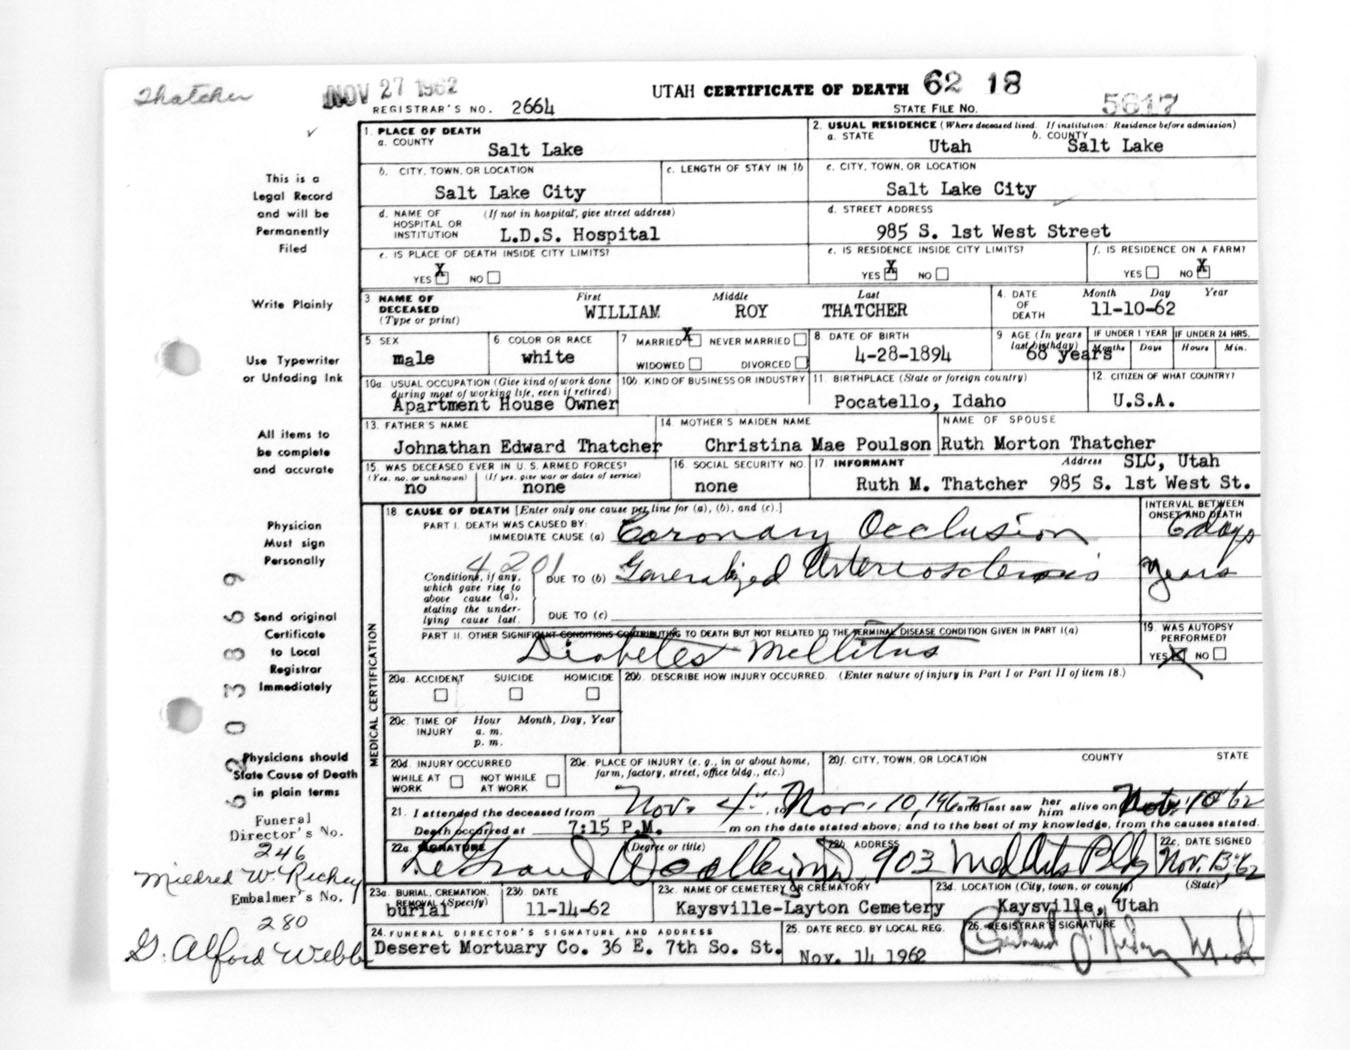 Thatcher
NOV 27 1962
UTAH CERTIFICATE OF DEATH 62 18
REGISTRAR'S NO. 2664
STATE FILE NO. 5617
This is a
Legal Record
and will be
Permanently
Filed
Write Plainly
Use Typewriter
or Unfading Ink
All items to
be complete
and accurate
Physician
Must sign
Personally
Send original
Certificate
to Local
Registrar
Immediately
Physicians should
State Cause of Death
in plain terms
Funeral
Director's No.
246
Mildred W. Richey
Embalmer's No.
280
G. Alford Webb
1. PLACE OF DEATH
a. COUNTY
Salt Lake
2. USUAL RESIDENCE (Where deceased lived. If institution: Residence before admission)
a. STATE Utah b. COUNTY Salt Lake
b. CITY, TOWN, OR LOCATION
Salt Lake City
c. LENGTH OF STAY IN 1b
c. CITY, TOWN, OR LOCATION
Salt Lake City
d. NAME OF HOSPITAL OR INSTITUTION (If not in hospital, give street address)
L.D.S. Hospital
d. STREET ADDRESS
985 S. 1st West Street
e. IS PLACE OF DEATH INSIDE CITY LIMITS?
YES X NO
e. IS RESIDENCE INSIDE CITY LIMITS?
YES X NO
f. IS RESIDENCE ON A FARM?
YES NO X
3 NAME OF DECEASED (Type or print)
First Middle Last
WILLIAM ROY THATCHER
4. DATE OF DEATH Month Day Year
11-10-62
5. SEX
male
6. COLOR OR RACE
white
7 MARRIED X NEVER MARRIED
WIDOWED DIVORCED
8. DATE OF BIRTH
4-28-1894
9 AGE (In years last birthday)
68 years
IF UNDER 1 YEAR
Months Days
IF UNDER 24 HRS.
Hours Min.
10a. USUAL OCCUPATION (Give kind of work done during most of working life, even if retired)
Apartment House Owner
10b. KIND OF BUSINESS OR INDUSTRY
11. BIRTHPLACE (State or foreign country)
Pocatello, Idaho
12. CITIZEN OF WHAT COUNTRY?
U.S.A.
13. FATHER'S NAME
Johnathan Edward Thatcher
14. MOTHER'S MAIDEN NAME
Christina Mae Poulson
NAME OF SPOUSE
Ruth Morton Thatcher
15. WAS DECEASED EVER IN U. S. ARMED FORCES?
(Yes, no, or unknown) (If yes, give war or dates of service)
no none
16. SOCIAL SECURITY NO.
none
17. INFORMANT Address SLC, Utah
Ruth M. Thatcher 985 S. 1st West St.
MEDICAL CERTIFICATION
18 CAUSE OF DEATH [Enter only one cause per line for (a), (b), and (c).]
INTERVAL BETWEEN ONSET AND DEATH
PART I. DEATH WAS CAUSED BY:
IMMEDIATE CAUSE (a) Coronary Occlusion 6 days
4201
Conditions, if any, which gave rise to above cause (a), stating the underlying cause last.
DUE TO (b) Generalized Arteriosclerosis years
DUE TO (c)
PART II. OTHER SIGNIFICANT CONDITIONS CONTRIBUTING TO DEATH BUT NOT RELATED TO THE TERMINAL DISEASE CONDITION GIVEN IN PART I(a)
Diabetes Mellitus
19. WAS AUTOPSY PERFORMED?
YES X NO
20a. ACCIDENT SUICIDE HOMICIDE
20b. DESCRIBE HOW INJURY OCCURRED. (Enter nature of injury in Part I or Part II of item 18.)
20c. TIME OF INJURY Hour Month, Day, Year
a. m.
p. m.
20d. INJURY OCCURRED
WHILE AT WORK NOT WHILE AT WORK
20e. PLACE OF INJURY (e. g., in or about home, farm, factory, street, office bldg., etc.)
20f. CITY, TOWN, OR LOCATION COUNTY STATE
21. I attended the deceased from Nov. 4, to Nov. 10, 1962 and last saw her him alive on Nov. 10 '62
Death occurred at 7:15 P.M. m on the date stated above; and to the best of my knowledge, from the causes stated.
22a. SIGNATURE (Degree or title)
22b. ADDRESS
903 Med Arts Bldg
22c. DATE SIGNED
Nov. 13-62
23a. BURIAL, CREMATION, REMOVAL (Specify)
burial
23b. DATE
11-14-62
23c. NAME OF CEMETERY OR CREMATORY
Kaysville-Layton Cemetery
23d. LOCATION (City, town, or county) (State)
Kaysville, Utah
24. FUNERAL DIRECTOR'S SIGNATURE AND ADDRESS
Deseret Mortuary Co. 36 E. 7th So. St.
25. DATE RECD. BY LOCAL REG.
Nov. 14 1962
26. REGISTRAR'S SIGNATURE